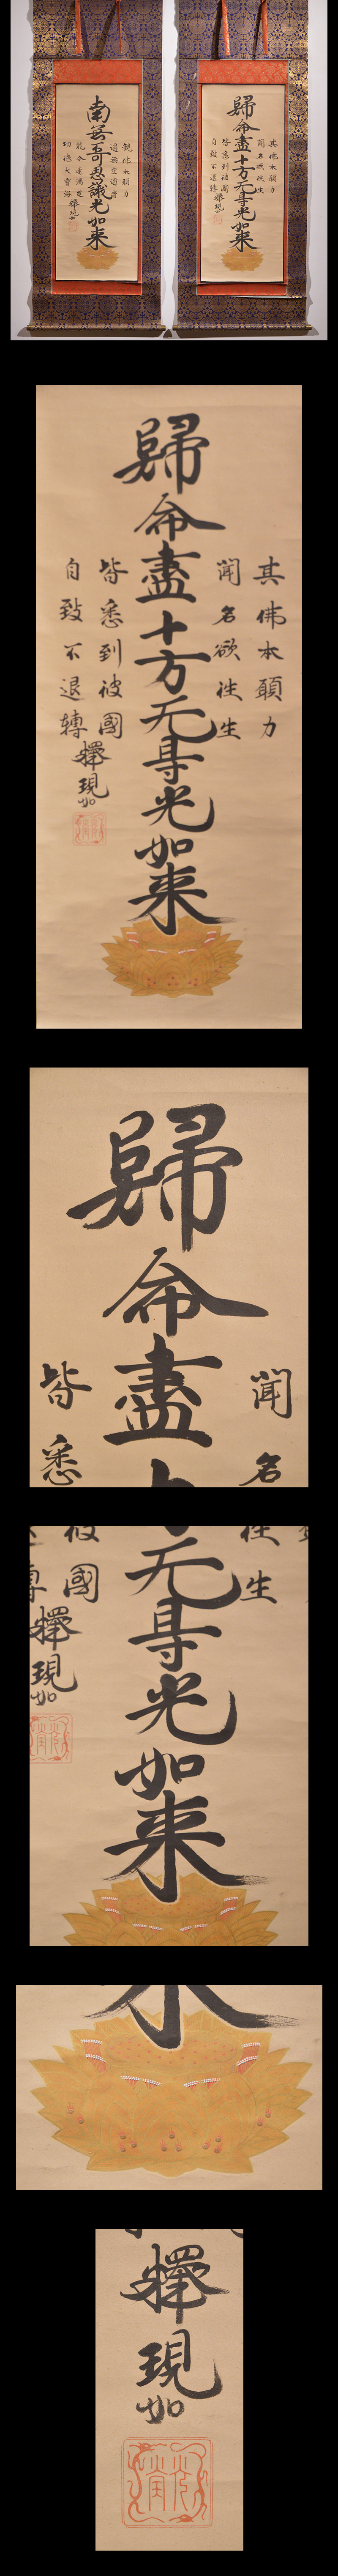 其佛本願力
聞名欲往生
歸命盡十方无㝵光如来
皆悉到彼國
自致不退轉
釋現如
觀佛本願力
遇無空過者
南无不可思議光如来
能令速滿足
功德大寶海
釋現如
其佛本願力
聞名欲往生
歸命盡十方无㝵光如来
皆悉到彼國
自致不退轉
釋現如
聞名
歸命盡十
皆悉
往生
无㝵光如来
彼國
轉
釋現如
釋現如